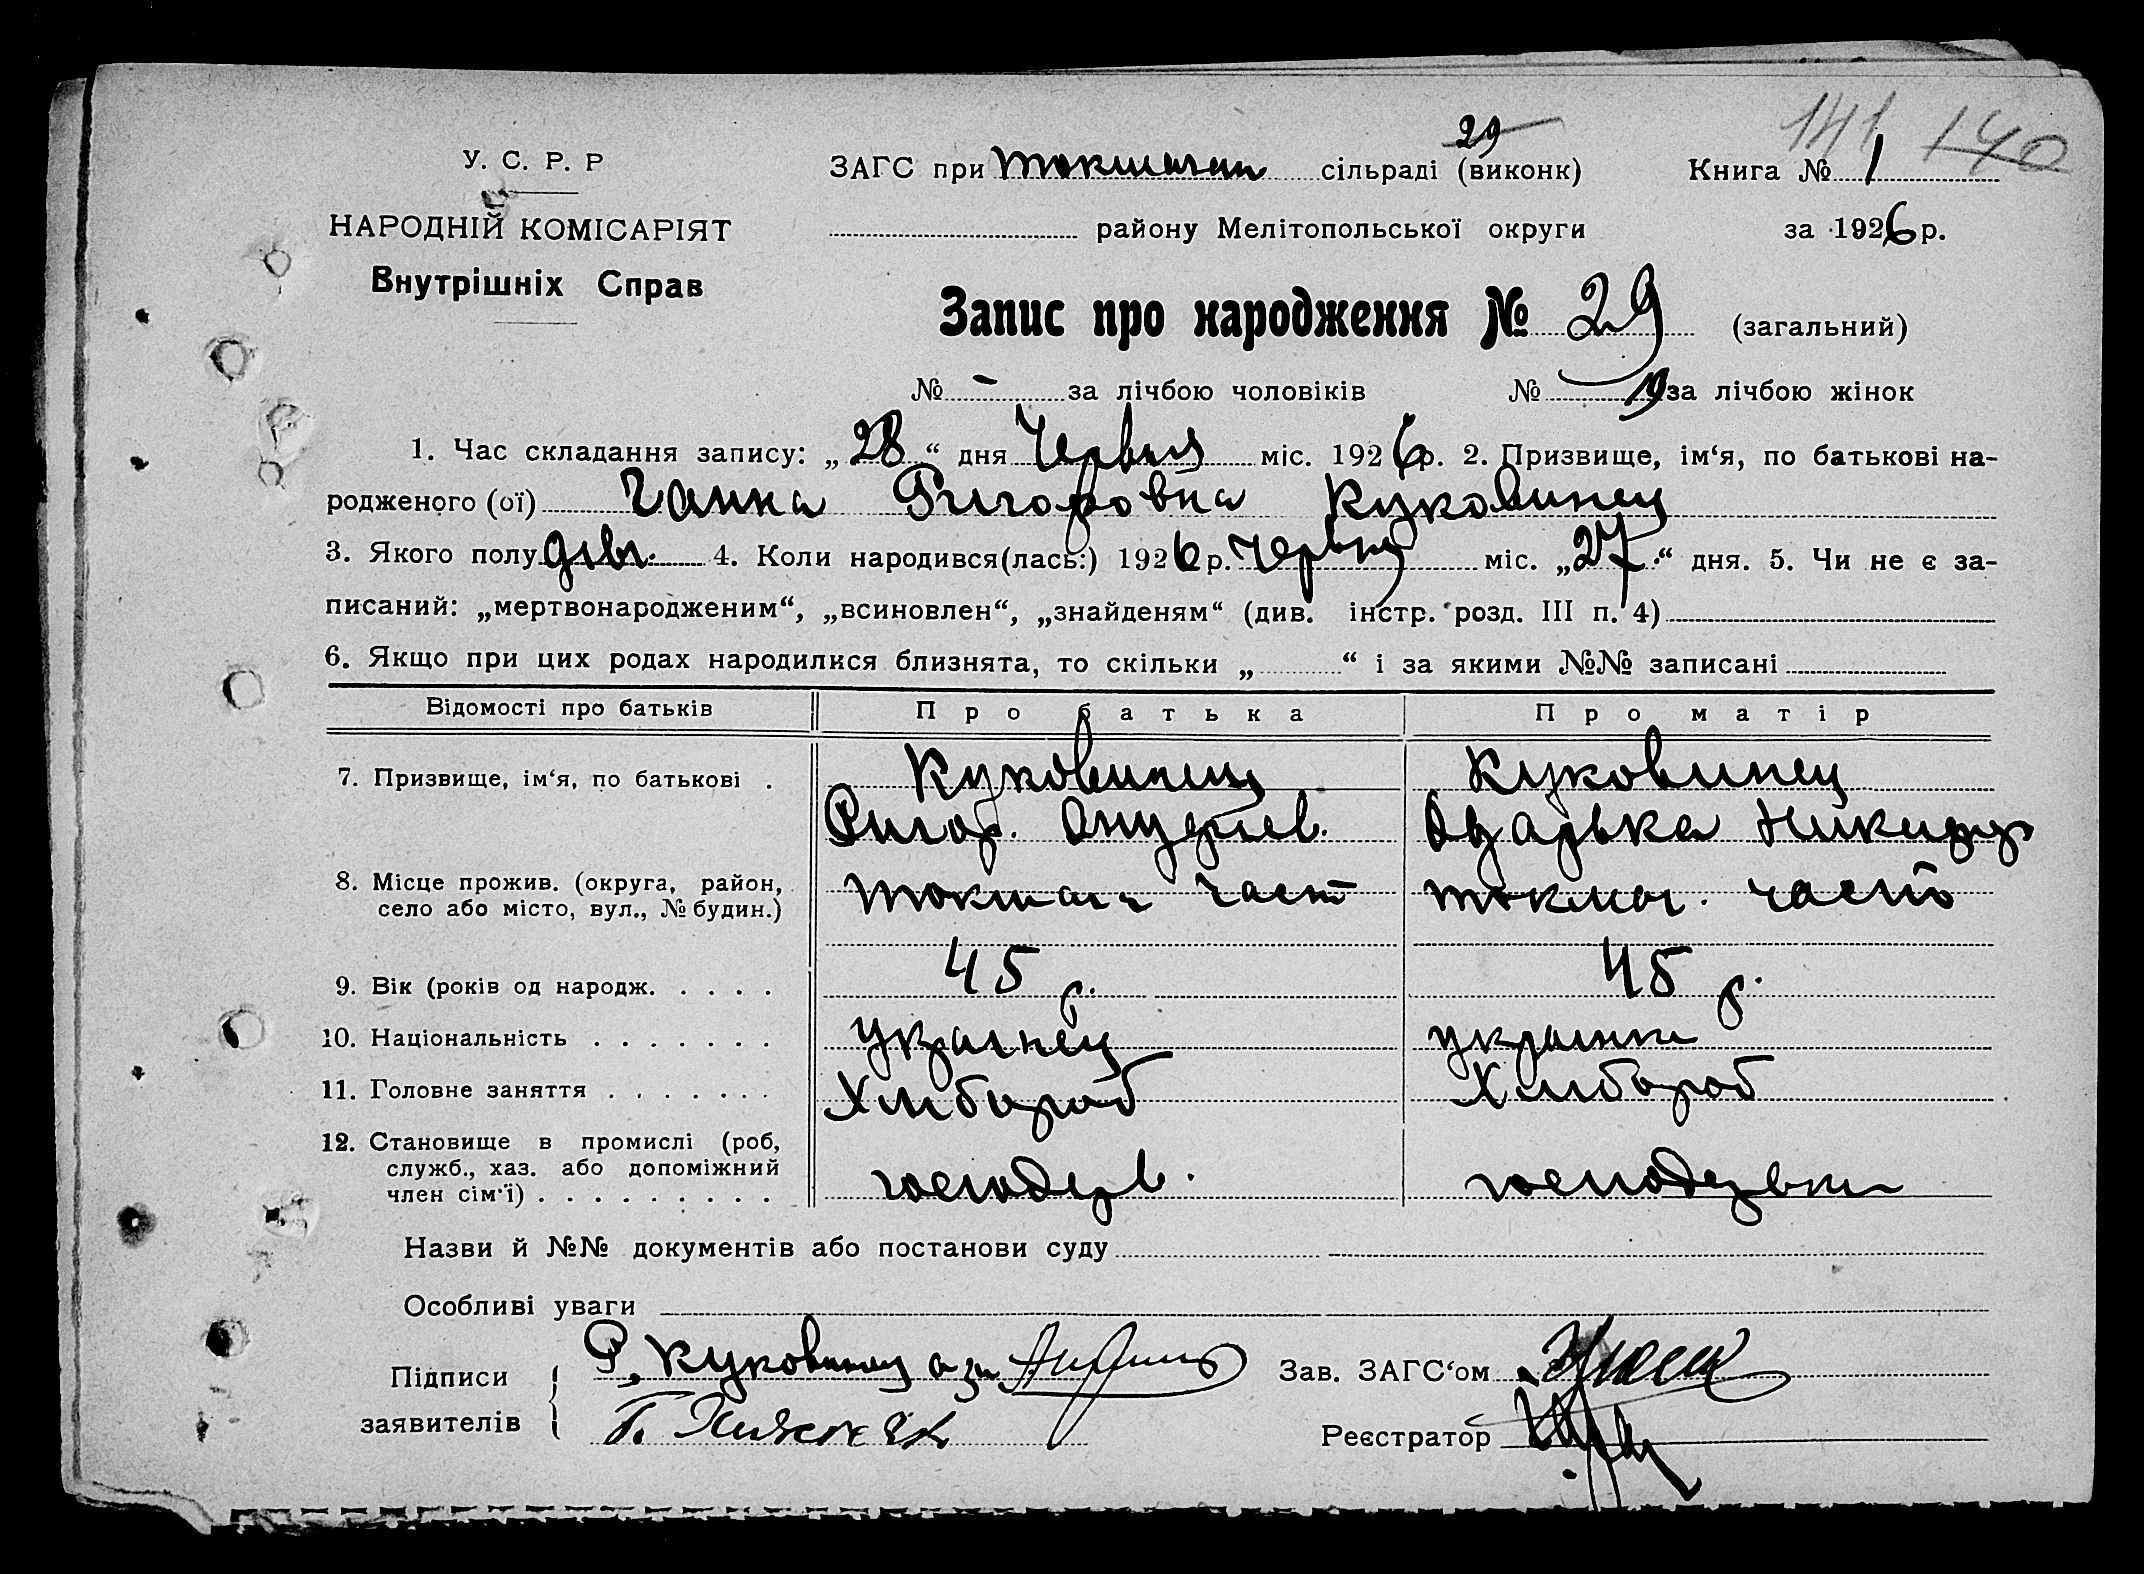 141 140
29
У. С. Р. Р
ЗАГС при сільраді (виконк) Книга № 1
НАРОДНІЙ КОМІСАРІЯТ
району Мелітопольської округи за 1926 р.
Внутрішніх Справ
Запис про народження № 29 (загальний)
№ - за лічбою чоловіків № 19 за лічбою жінок
1. Час складання запису: „28“ дня Червня міс. 1926 р. 2. Призвище, ім‘я, по батькові на-
родженого (ої) Ганна Григоровна Куковинец
3. Якого полу дівч. 4. Коли народився(лась:) 1926 р. Червня міс. „27“ дня. 5. Чи не є за-
писаний: „мертвонародженим“, „всиновлен“, „знайденям“ (див. інстр. розд. III п. 4)
6. Якщо при цих родах народилися близнята, то скільки „ “ і за якими №№ записані
Відомості про батьків Про батька Про матір
7. Призвище, ім‘я, по батькові . Куковинец Куковинец
Григор. Одарька Никифор
8. Місце прожив. (округа, район, Токмак част токмак. часть
село або місто, вул., № будин.)
9. Вік (років од народж. . . . . 45 р. 45 р.
10. Національність . . . . . . . українец українка
11. Головне заняття . . . . . . . Хлібороб Хлібороб
12. Становище в промислі (роб,
служб., хаз. або допоміжний господар. господарка
член сім‘ї) . . . . . . . . .
Назви й №№ документів або постанови суду
Особливі уваги
Підписи Г. Куковинец а за Зав. ЗАГС‘ом
заявителів
Реєстратор